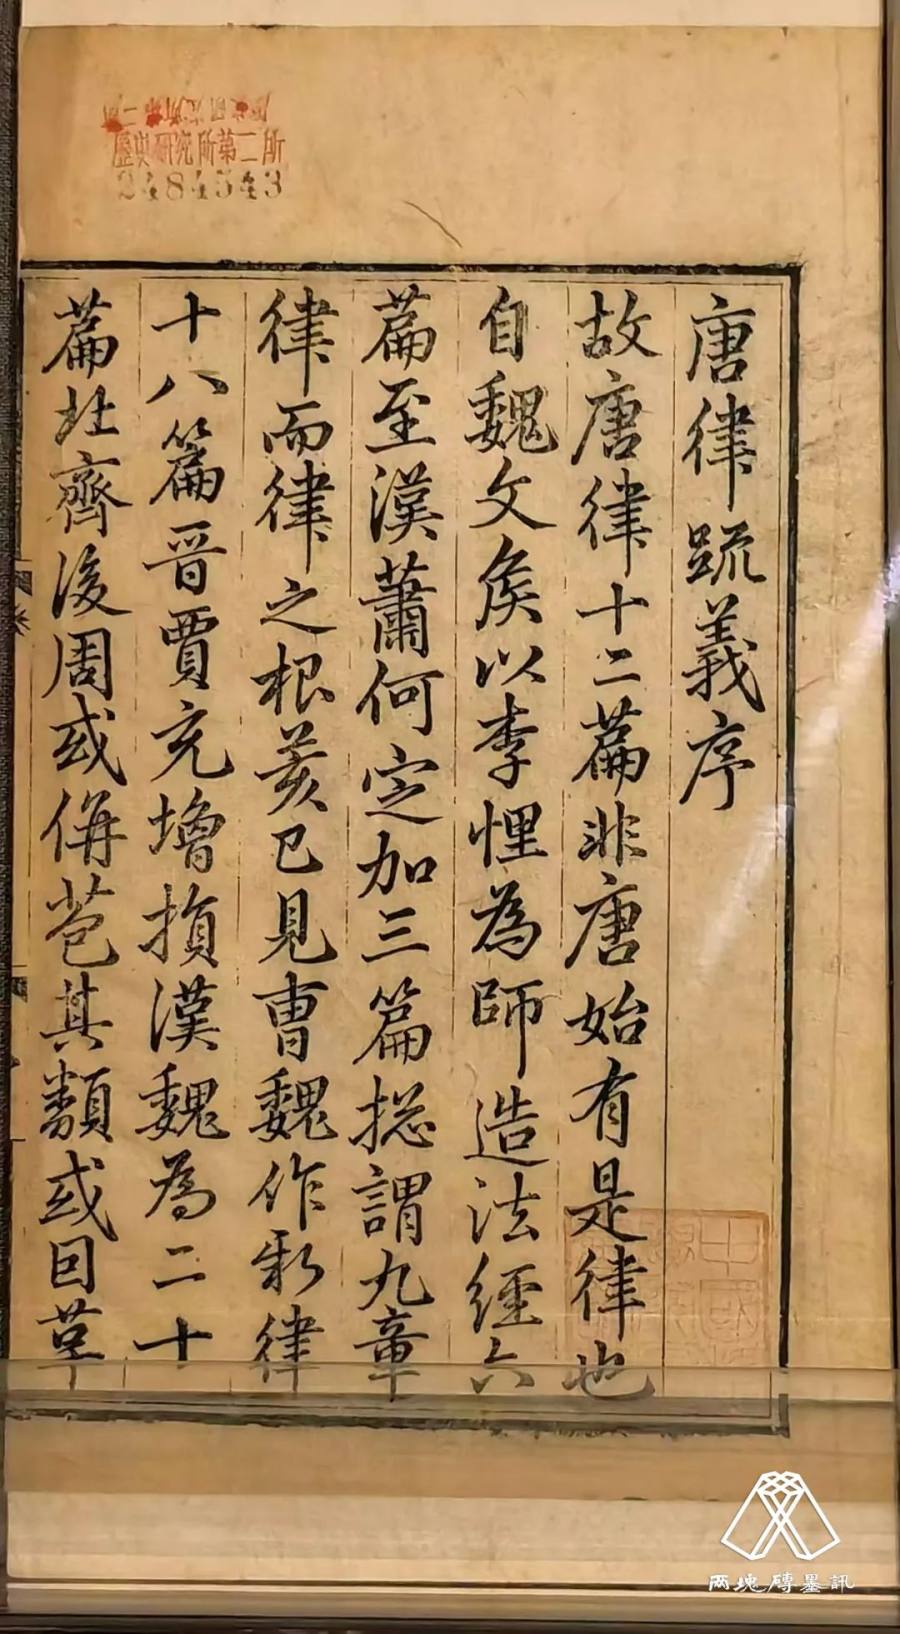 歷史研究所第二所
2484543
唐律疏義序
故唐律十二篇非唐始有是律也
自魏文矦以李悝為師造法經六
篇至漢蕭何定加三篇捴謂九章
律而律之根荄已見曺魏作新律
十八篇晉賈充增損漢魏為二十
篇北齊後周或倂苞其類或因革
两塊磚墨訊